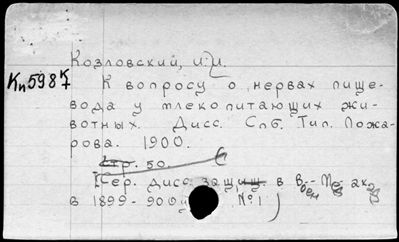 Козловский, И.И.
Кп598К
К вопросу о нервах пище-
вода у млекопитающих жи-
вотных. Дисс. Спб. Тип. Пожа-
рова. 1900.
Стр. 50.
[Сер. дисс. защищ. в Воен.-Мед. акад.
в 1899-900 №1)